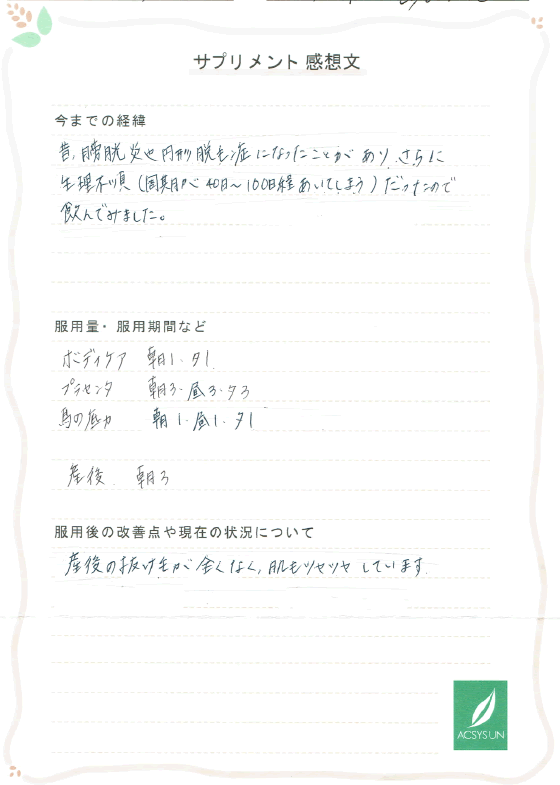 サプリメント 感想文
今までの経緯
昔、膀胱炎や円形脱毛症になったことがあり、さらに
生理不順（周期が40日〜100日程あいてしまう）だったので
飲んでみました。
服用量・服用期間など
ボディケア 朝1・夕1
プラセンタ 朝3・昼3・夕3
馬の底力 朝1・昼1・夕1
産後 朝3
服用後の改善点や現在の状況について
産後の抜け毛が全くなく、肌もツヤツヤしています。
ACSYSUN